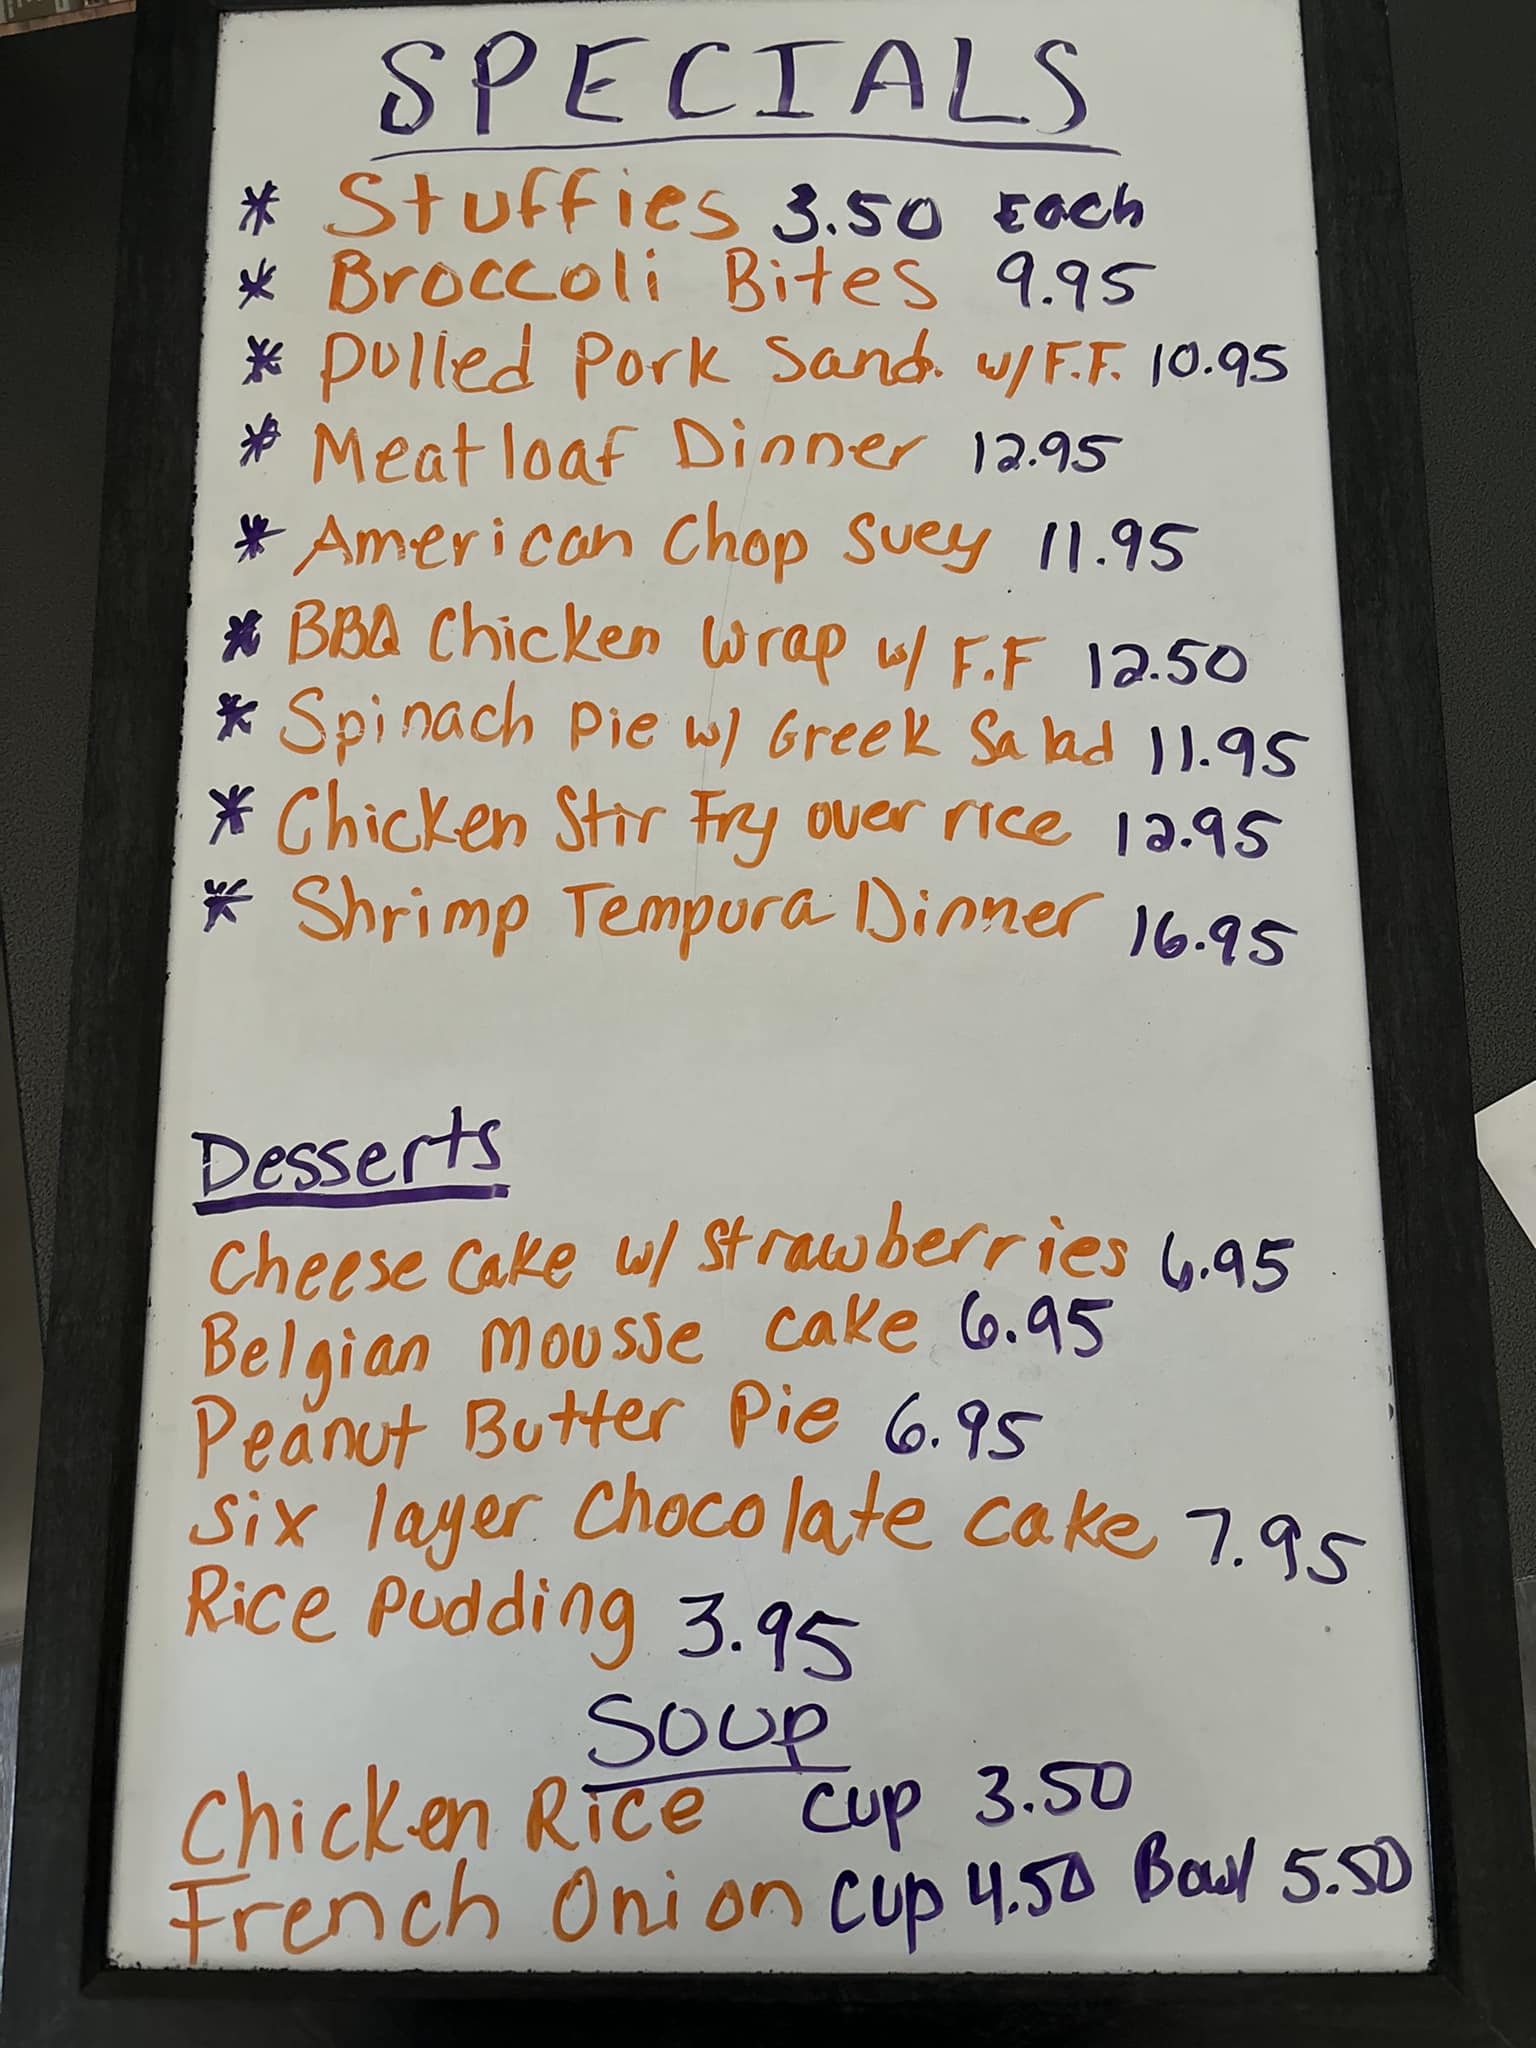 SPECIALS
* Stuffies 3.50 Each
* Broccoli Bites 9.95
* Pulled Pork Sand. w/ F.F. 10.95
* Meatloaf Dinner 12.95
* American Chop Suey 11.95
* BBQ Chicken Wrap w/ F.F 12.50
* Spinach Pie w/ Greek Salad 11.95
* Chicken Stir Fry over rice 12.95
* Shrimp Tempura Dinner 16.95
Desserts
Cheese Cake w/ Strawberries 6.95
Belgian Mousse cake 6.95
Peanut Butter Pie 6.95
Six layer Chocolate cake 7.95
Rice Pudding 3.95
Soup
Chicken Rice cup 3.50
French Onion cup 4.50 Bowl 5.50